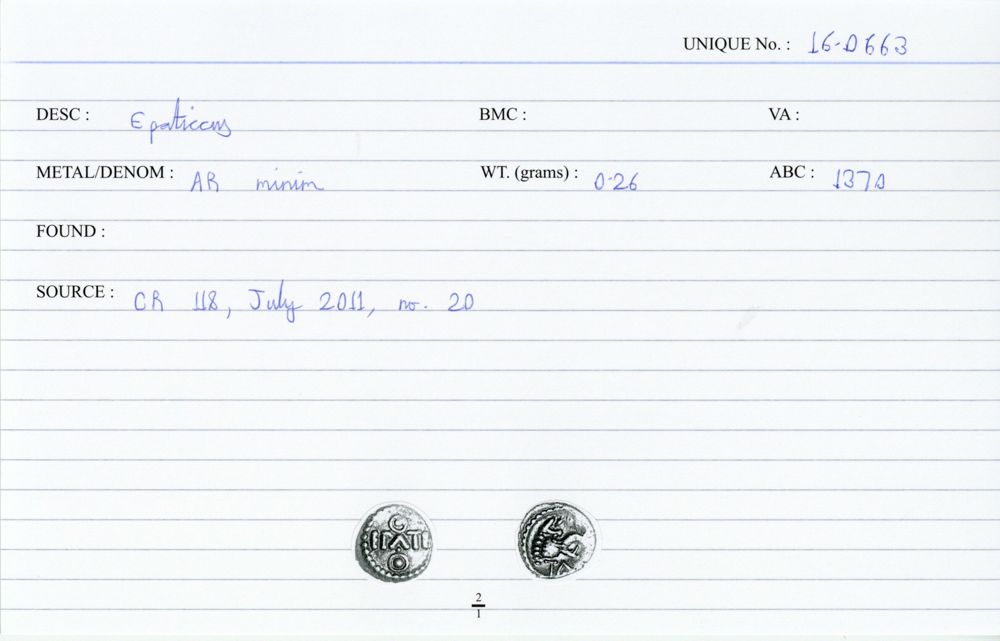 UNIQUE No. : 16-0663
DESC : Epaticcus BMC : VA :
METAL/DENOM : AR minim WT. (grams) : 0.26 ABC : 1370
FOUND :
SOURCE : CR 118, July 2011, no. 20
2
1